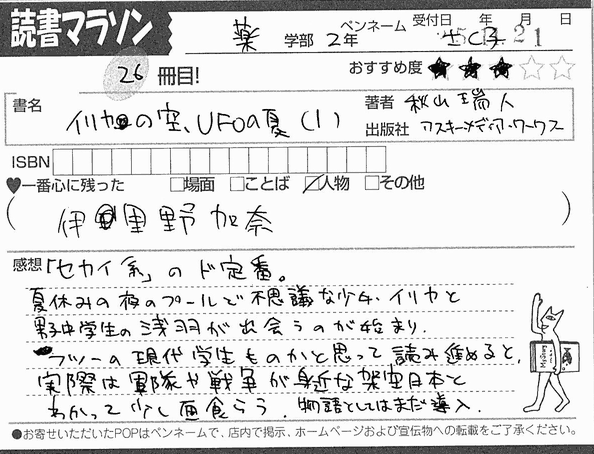 読書マラソン
薬 学部 2年 ペンネーム 受付日 年 月 日
26 冊目! おすすめ度 ★★★☆☆
書名 イリヤの空、UFOの夏(1)
著者 秋山瑞人
出版社 アスキー・メディアワークス
ISBN
♥一番心に残った □場面 □ことば ☑人物 □その他
(伊里野加奈)
感想「セカイ系」のド定番。
夏休みの夜のプールで不思議な少女、イリヤと
男子中学生の浅羽が出会うのが始まり。
フツーの現代学生ものかと思って読み進めると、
実際は軍隊や戦争が身近な架空日本と
わかって少し面食らう。物語としてはまだ導入。
●お寄せいただいたPOPはペンネームで、店内で掲示、ホームページおよび宣伝物への転載をご了承ください。